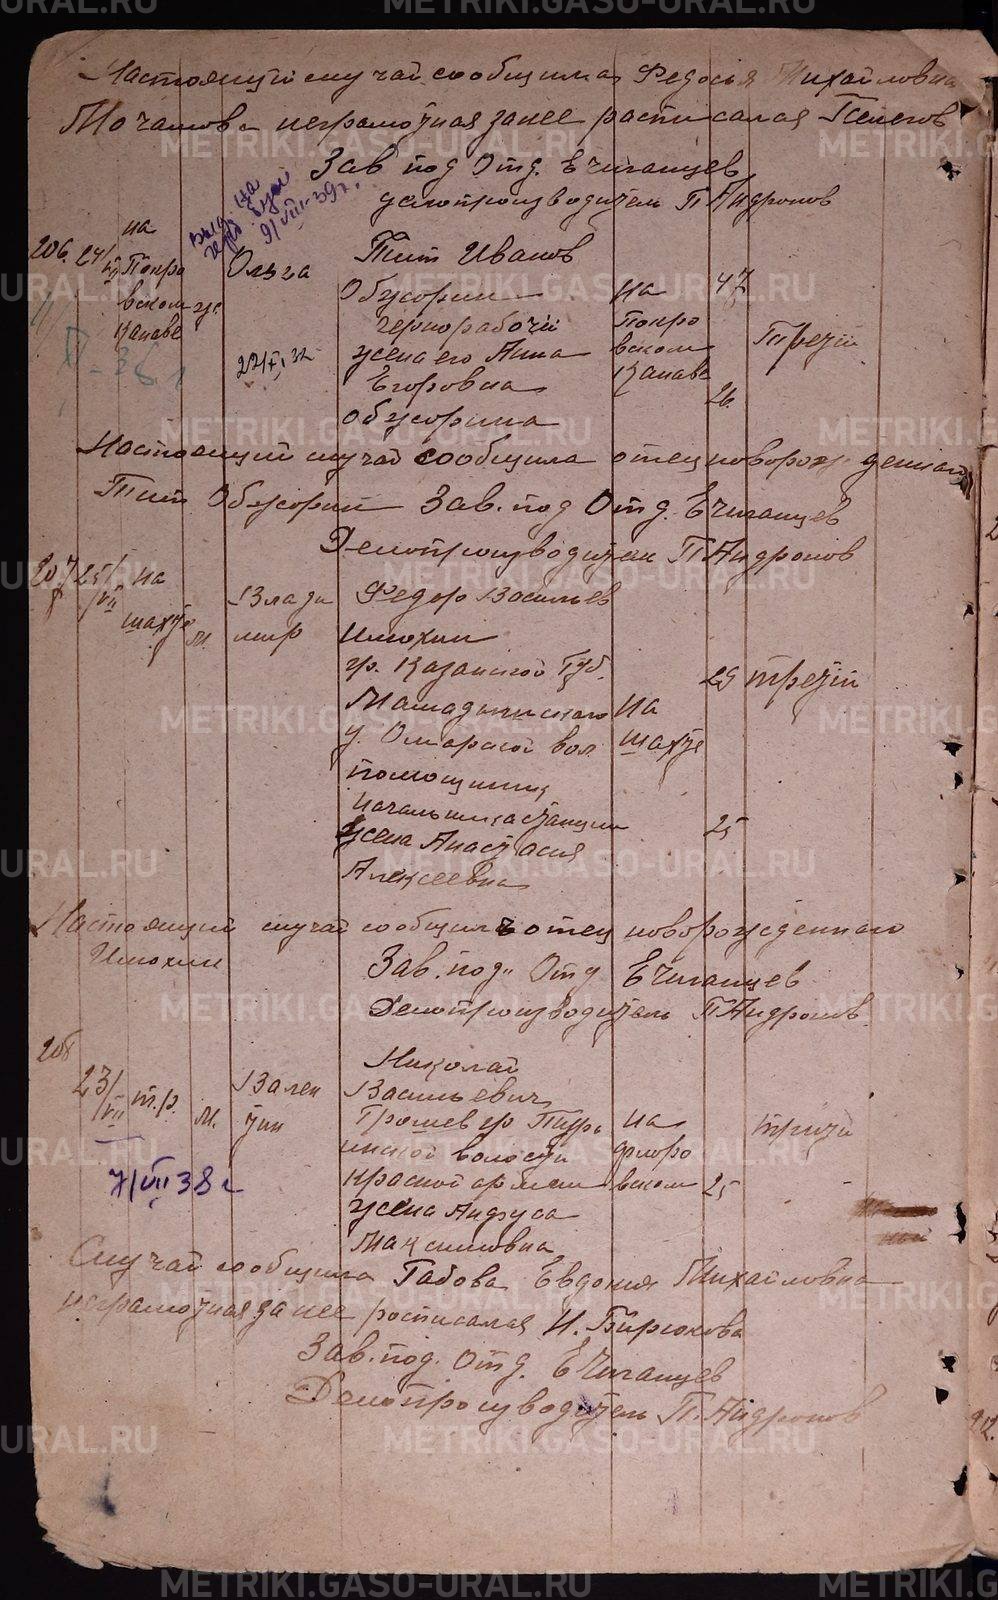 Настоящий случай сообщила Федосья Михайловна
Мочалова неграмотная за нее расписался
Зав под Отд. Е Чиганцев
делопроизводитель П Андронов
9/VIII-39 г.
206 24/VII на Покровском ж. канаве
Ольга
22/XI 32
Тит Иванов
Обжорин
чернорабочий
жена его Анна
Егоровна
Обжорина
на Покровском канаве
47
26
Третий
Настоящий случай сообщила отец новорожденной
Тит Обжорин Зав. под Отд. Е Чиганцев
Делопроизводитель П Андронов
207 25/VII на шахте м.
Владимир
Федор Васильев
Имохин
гр. Казанской Губ.
Мамадышского
у. Омарской вол.
помощник
начальника станции
жена Анастасия
Алексеевна
на шахте
29
25
третий
Настоящий случай сообщилъ отец новорожденного
Имохин Зав. под. Отд Е Чиганцев
Делопроизводитель П Андронов
208
23/VII т.р. м.
Валентин
7/VII 38 г
Николай
Васильевич
волости
красной армии
жена
Максимовна
на
25
третий
Случай сообщила Габова Евдокия Михайловна
неграмотная за нее росписалая Н. Бирюкова
Зав. под. Отд. Е Чиганцев
Делопроизводитель П. Андронов
METRIKI.GASO-URAL.RU